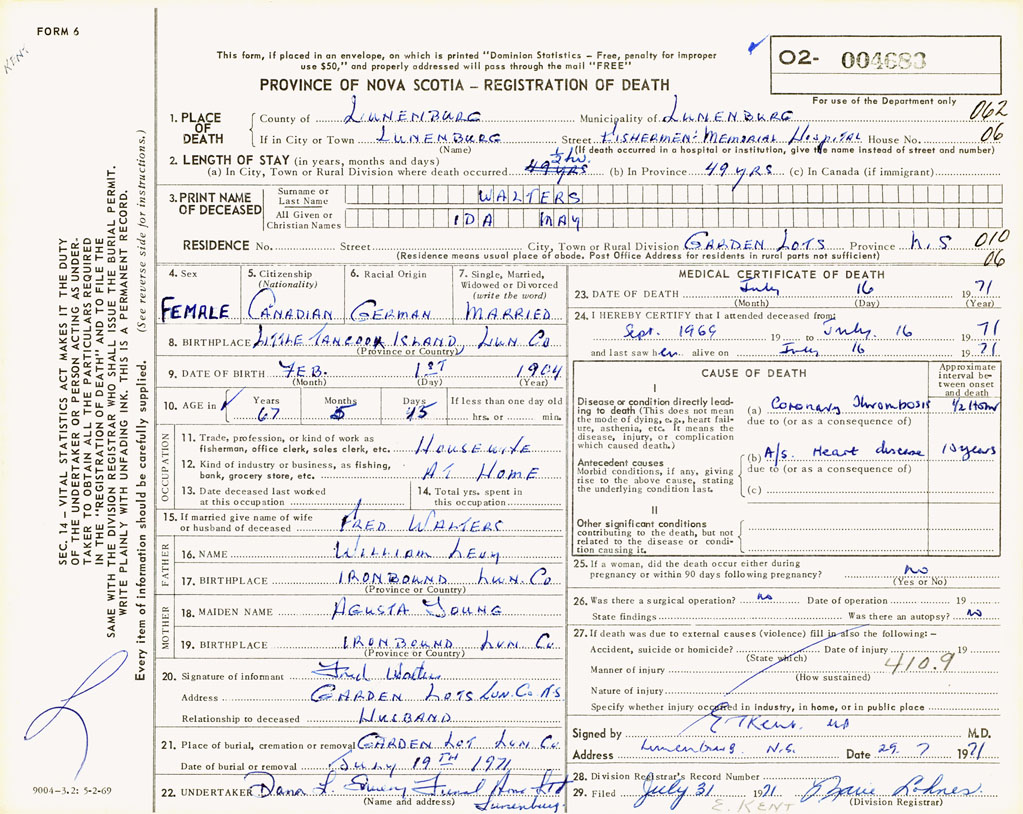 FORM 6
KENT
This form, if placed in an envelope, on which is printed "Dominion Statistics – Free, penalty for improper
use $50," and properly addressed will pass through the mail "FREE"
02- 004683
PROVINCE OF NOVA SCOTIA – REGISTRATION OF DEATH
For use of the Department only
1. PLACE OF DEATH County of LUNENBURG Municipality of LUNENBURG 062
If in City or Town LUNENBURG Street FISHERMEN'S MEMORIAL HOSPITAL House No. 06
(Name) (If death occurred in a hospital or institution, give the name instead of street and number)
2. LENGTH OF STAY (in years, months and days) ½ hr.
(a) In City, Town or Rural Division where death occurred 49 YRS (b) In Province 49 YRS (c) In Canada (if immigrant)
3. PRINT NAME OF DECEASED Surname or Last Name WALTERS
All Given or Christian Names IDA MAY
RESIDENCE No. Street City, Town or Rural Division GARDEN LOTS Province N.S 010
(Residence means usual place of abode. Post Office Address for residents in rural parts not sufficient) 06
4. Sex 5. Citizenship (Nationality) 6. Racial Origin 7. Single, Married, Widowed or Divorced (write the word)
FEMALE CANADIAN GERMAN MARRIED
8. BIRTHPLACE LITTLE TANCOOK ISLAND LUN CO
(Province or Country)
9. DATE OF BIRTH FEB. 1ST 1904
(Month) (Day) (Year)
10. AGE in Years Months Days If less than one day old
67 5 15 hrs. or min.
OCCUPATION
11. Trade, profession, or kind of work as fisherman, office clerk, sales clerk, etc. HOUSEWIFE
12. Kind of industry or business, as fishing, bank, grocery store, etc. AT HOME
13. Date deceased last worked at this occupation
14. Total yrs. spent in this occupation
15. If married give name of wife or husband of deceased FRED WALTERS
FATHER
16. NAME WILLIAM LEVY
17. BIRTHPLACE IRONBOUND LUN. CO
(Province or Country)
MOTHER
18. MAIDEN NAME AGUSTA YOUNG
19. BIRTHPLACE IRONBOUND LUN CO
(Province or Country)
20. Signature of informant Fred Walters
Address GARDEN LOTS LUN. CO NS
Relationship to deceased HUSBAND
21. Place of burial, cremation or removal GARDEN LOT LUN CO.
Date of burial or removal JULY 19TH 1971
22. UNDERTAKER Dana L. Funeral Home Ltd
(Name and address) Lunenburg
MEDICAL CERTIFICATE OF DEATH
23. DATE OF DEATH July 16 1971
(Month) (Day) (Year)
24. I HEREBY CERTIFY that I attended deceased from:
Sept. 1969 19 to July. 16 1971
and last saw her alive on July 16 1971
CAUSE OF DEATH
Approximate interval between onset and death
I
Disease or condition directly leading to death (This does not mean the mode of dying, e.g., heart failure, asthenia, etc. It means the disease, injury, or complication which caused death.)
(a) Coronary Thrombosis ½ Hour
due to (or as a consequence of)
Antecedent causes
Morbid conditions, if any, giving rise to the above cause, stating the underlying condition last.
(b) A/s. Heart disease 10 years
due to (or as a consequence of)
(c)
II
Other significant conditions
contributing to the death, but not related to the disease or condition causing it.
25. If a woman, did the death occur either during pregnancy or within 90 days following pregnancy? no
(Yes or No)
26. Was there a surgical operation? no Date of operation 19
State findings Was there an autopsy? no
27. If death was due to external causes (violence) fill in also the following: –
Accident, suicide or homicide? Date of injury 19
(State which)
Manner of injury 410.9
(How sustained)
Nature of injury
Specify whether injury occurred in industry, in home, or in public place
Signed by E T Kent MD M.D.
Address Lunenburg N.S. Date 29. 7 1971
28. Division Registrar's Record Number
29. Filed July 31 1971 Lohnes
E. KENT (Division Registrar)
SEC. 14 – VITAL STATISTICS ACT MAKES IT THE DUTY
OF THE UNDERTAKER OR PERSON ACTING AS UNDER-
TAKER TO OBTAIN ALL THE PARTICULARS REQUIRED
IN THE "REGISTRATION OF DEATH" AND TO FILE THE
SAME WITH THE DIVISION REGISTRAR WHO SHALL ISSUE THE BURIAL PERMIT.
WRITE PLAINLY WITH UNFADING INK. THIS IS A PERMANENT RECORD.
Every item of information should be carefully supplied. (See reverse side for instructions.)
9004-3.2: 5-2-69